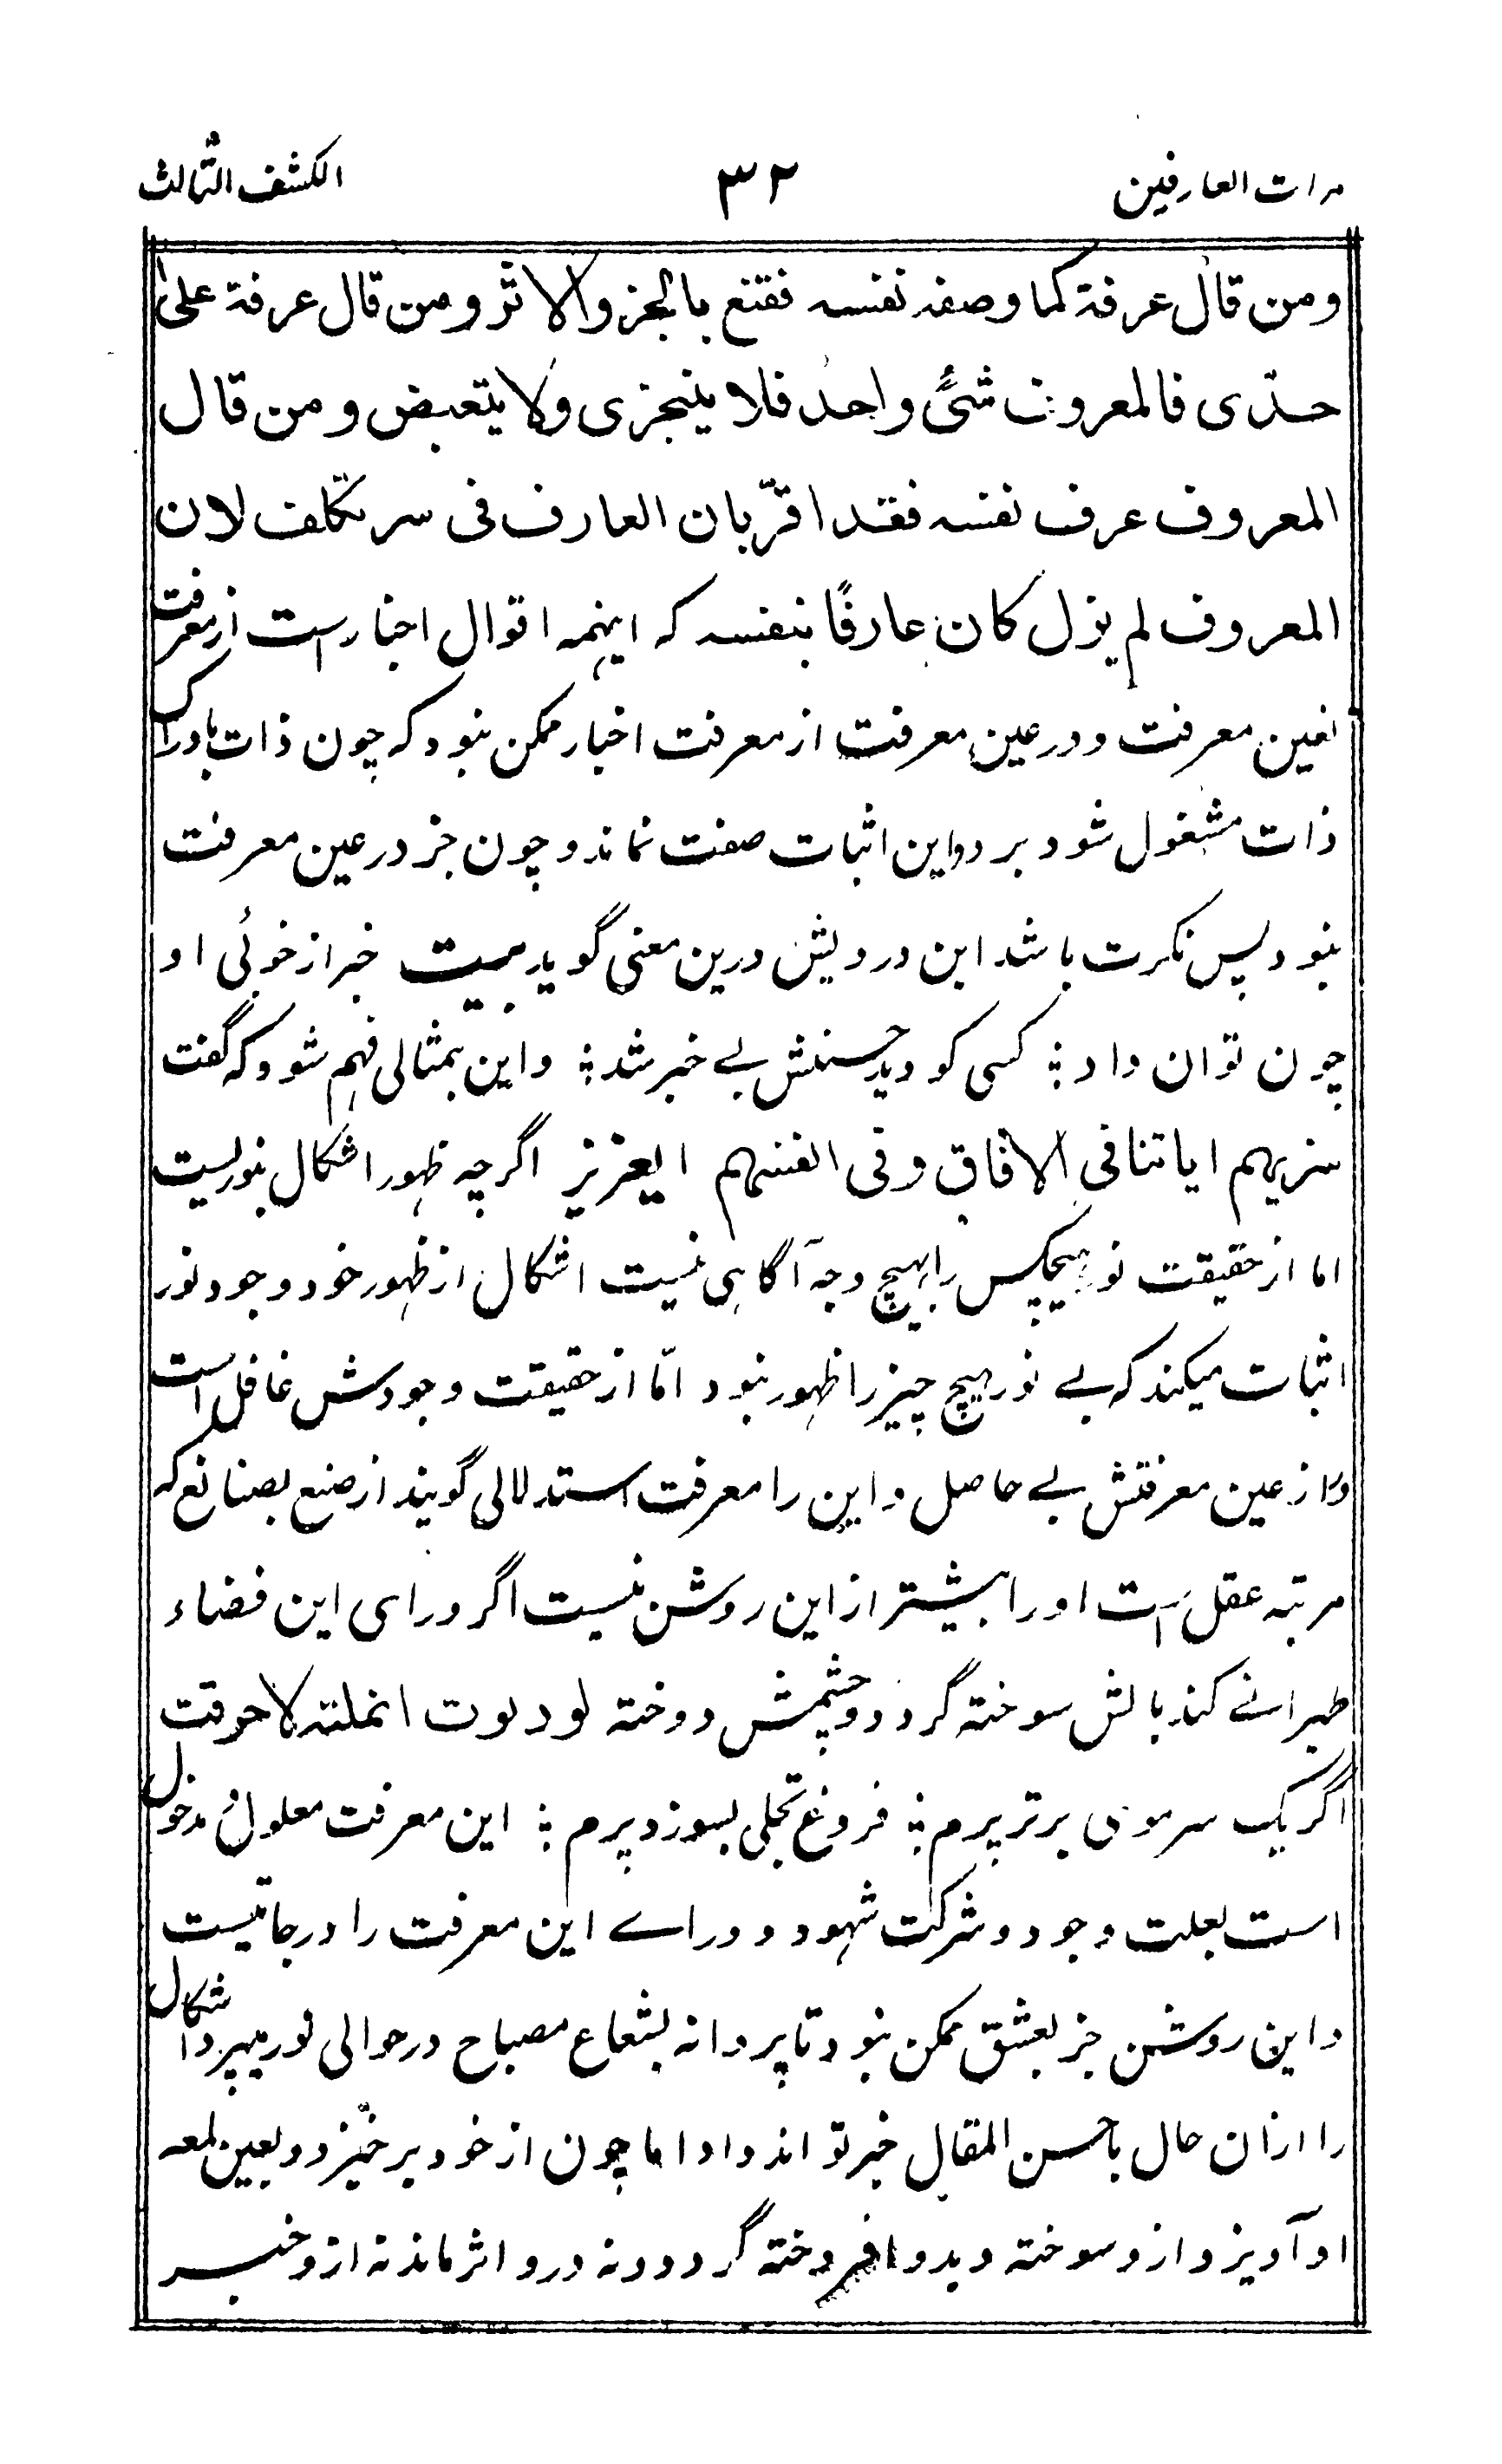 مرات العارفین ۳۲ الکشف الثالث
ومن قال عرفة کما وصف نفسه فقنع بالجز والاثر ومن قال عرفة علی
حدّی فالمعروف شیٔ واحد فلا یتجزی ولا یتبعض ومن قال
المعروف عرف نفسه فقد اقرّ بان العارف فی سر تکلف لان
المعروف لم یزل کان عارفًا بنفسه که اینهمه اقوال اخبارست از معرفت
نعین معرفت و در عین معرفت از معرفت اخبار ممکن نبود که چون ذات بادراک
ذات مشغول شود بر دواین اثبات صفت نماند و چون جز در عین معرفت
نبود پس نکرت باشد این درویش درین معنی گوید بیت خبر از خوئی او
چون توان داد ؛ کسی کو دید حسنش بے خبر شد ؛ واین بمثالی فهم شود که گفت
سنریهم ایاتنا فی الافاق وفی انفسهم ایعزیز اگرچه ظهور اشکال بنوریست
اما از حقیقت نور هیچکس را بهیچ وجه آگاهی نیست اشکال از ظهور خود وجود نور
اثبات میکند که بے نور هیچ چیز را ظهور نبود امّا از حقیقت وجودش غافل است
واز عین معرفتش بے حاصل واین را معرفت استدلالی گویند از صنع بصانع که
مرتبه عقل است او را بیشتر ازاین روشن نیست اگر ورای این فضاء
طیرانے کند بالش سوخته گردد و چشمش دوخته لو دنوت انملته لاحرقت
اگر یک سر موی برتر پرم ؛ فروغ تجلی بسوزد پرم ؛ این معرفت معلول مدخول
است بعلت وجود و شرکت شهود و وراے این معرفت را درجاتیست
واین روشن جز بعشق ممکن نبود تا پروانه بشعاع مصباح در حوالی نور میپرد اشکال
را ازان حال باحسن المقال خبر تواند داد اما چون از خود برخیزد و بعین لمعه
او آویزد ازو سوخته و بدو افروخته گردد و نه درو اثر ماند نه ازو خبر